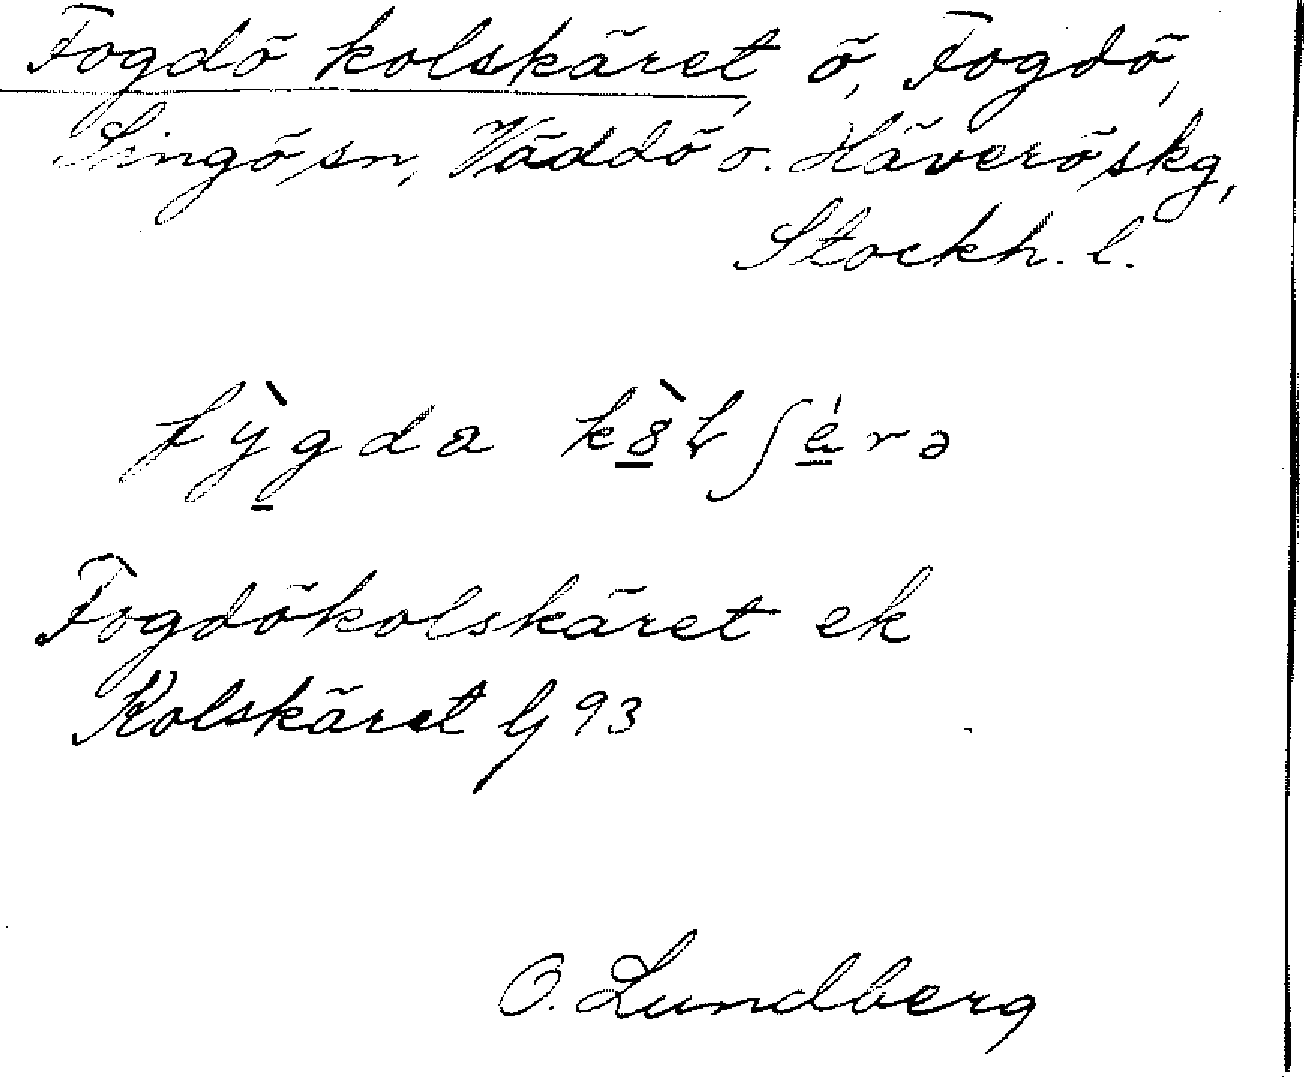 Fogdö kolskäret, ö, Fogdö,
Singö sn, Väddö o. Häverö skg,
Stockh. l.
Fogdökolskäret ek
Kolskäret G 93
O. Lundberg